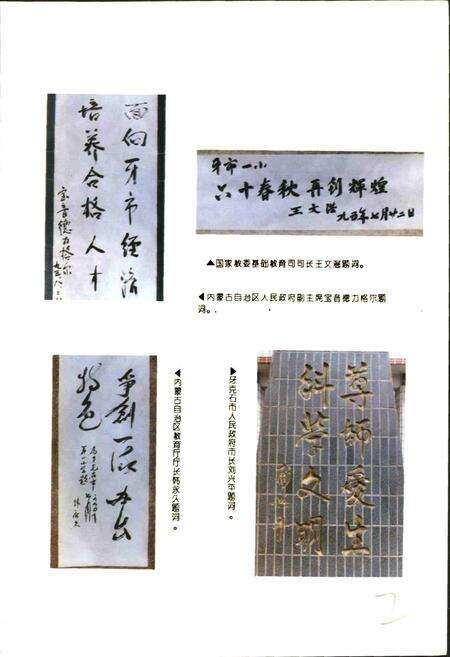 面向牙市经济
培养合格人才
宝音德力格尔
牙市一小
六十春秋 再创辉煌
王文湛
九五年七月廿二日
▲国家教委基础教育司司长王文湛题词。
◀内蒙古自治区人民政府副主席宝音德力格尔题
词。
争创一流 办出
特色
韩永久
◀内蒙古自治区教育厅厅长韩永久题词。
▶牙克石市人民政府市长刘兴平题词。
尊师爱生
科学文明